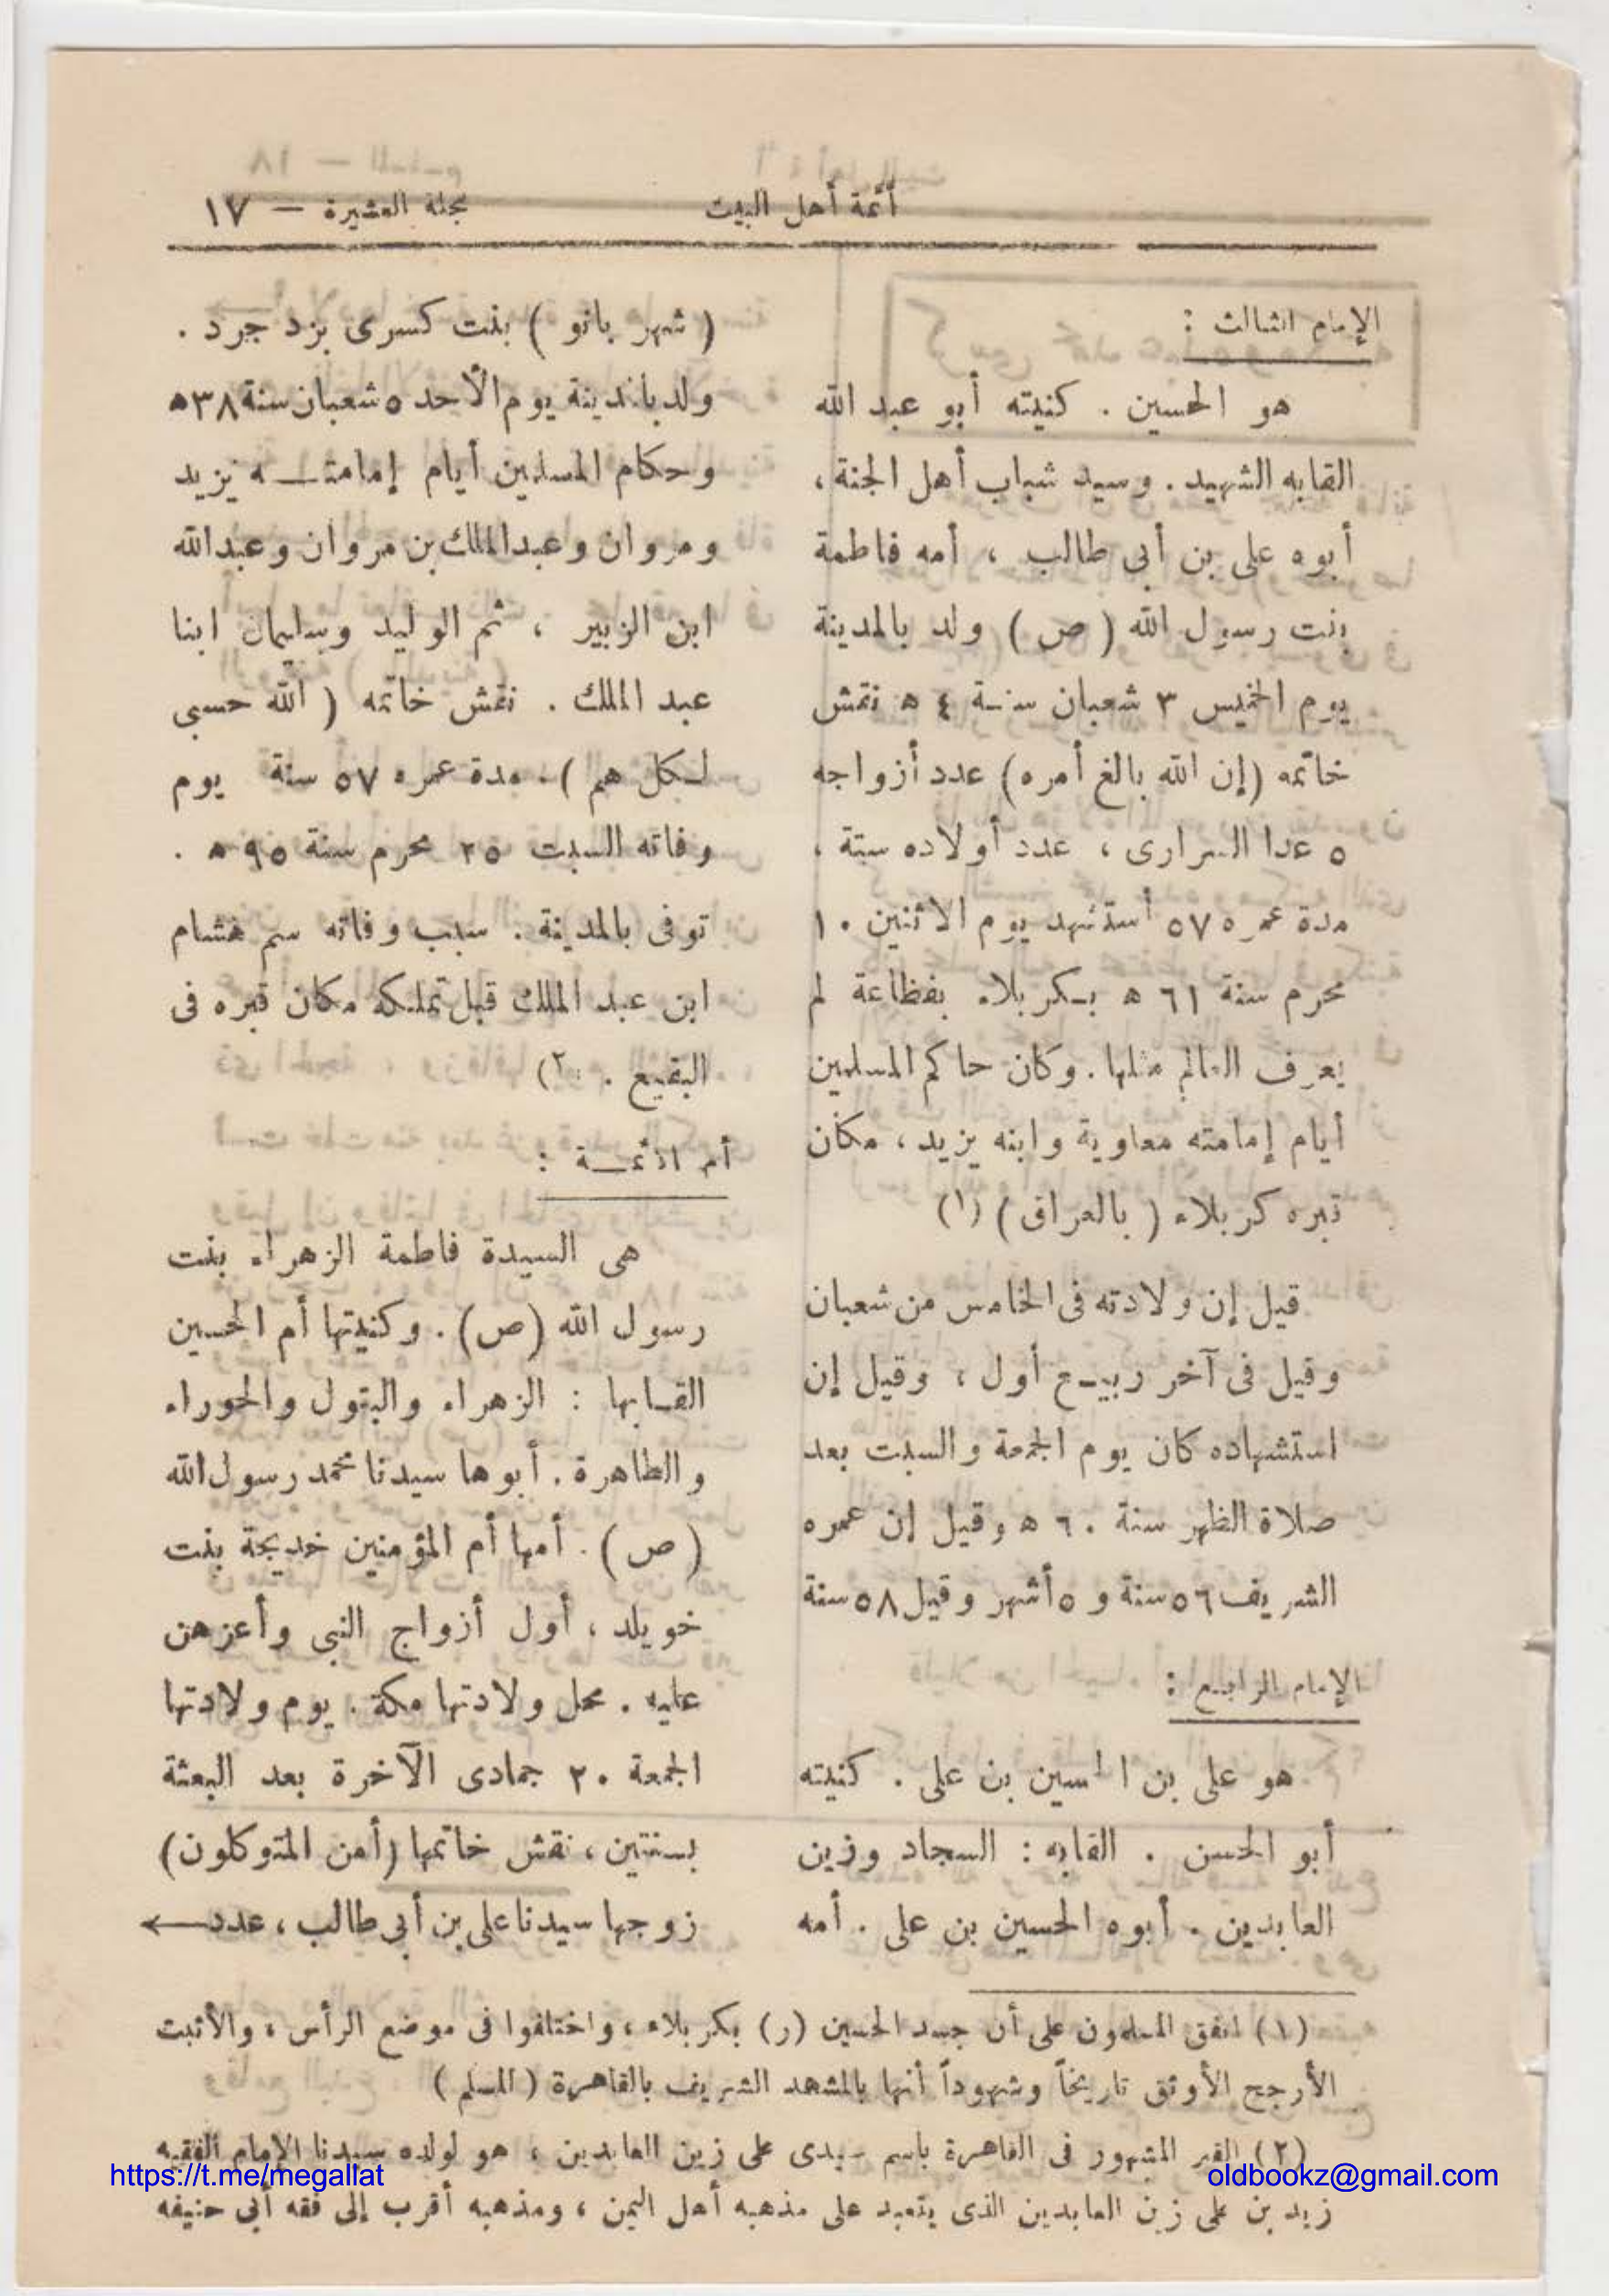 أئمة أهل البيت
مجلة العشيرة — ١٧
الإمام الثالث :
هو الحسين . كنيته أبو عبد الله
القابه الشهيد . وسيد شباب أهل الجنة ،
أبوه على بن أبى طالب ، أمه فاطمة
بنت رسول الله ( ص ) ولد بالمدينة
يوم الخميس ٣ شعبان سنة ٤ ه نقش
خاتمه (إن الله بالغ أمره) عدد أزواجه
٥ عدا السرارى ، عدد أولاده ستة ،
مدة عمره ٥٧ أستشهد يوم الاثنين ١٠
محرم سنة ٦١ ه بكربلاء بفظاعة لم
يعرف العالم مثلها . وكان حاكم المسلمين
أيام إمامته معاوية وابنه يزيد ، مكان
قبره كربلاء ( بالعراق ) (١)
قيل إن ولادته فى الخامس من شعبان
وقيل فى آخر ربيع أول ، وقيل إن
استشهاده كان يوم الجمعة والسبت بعد
صلاة الظهر سنة ٦٠ ه وقيل إن عمره
الشريف ٥٦ سنة و ٥ أشهر وقيل ٥٨ سنة
الإمام الرابع :
هو على بن الحسين بن على . كنيته
أبو الحسن . القابه : السجاد وزين
العابدين . أبوه الحسين بن على . أمه
( شهر بانو ) بنت كسرى يزد جرد .
ولد بالمدينة يوم الأحد ٥ شعبان سنة ٣٨ ه
وحكام المسلمين أيام إمامته يزيد
ومروان وعبد الملك بن مروان وعبد الله
ابن الزبير ، ثم الوليد وسليمان ابنا
عبد الملك . نقش خاتمه ( الله حسبى
لكل هم ) . مدة عمره ٥٧ سنة يوم
وفاته السبت ٢٥ محرم سنة ٩٥ ه .
توفى بالمدينة . سبب وفاته سم هشام
ابن عبد الملك قبل تملكه مكان قبره فى
البقيع . (٢)
أم الأئمة :
هى السيدة فاطمة الزهراء بنت
رسول الله (ص) . وكنيتها أم الحسين
القابها : الزهراء والبتول والحوراء
والطاهرة . أبوها سيدنا محمد رسول الله
( ص ) . أمها أم المؤمنين خديجة بنت
خويلد ، أول أزواج النبى وأعزهن
عليه . محل ولادتها مكة . يوم ولادتها
الجمعة ٢٠ جمادى الآخرة بعد البعثة
بسنتين ، نقش خاتمها (أمن المتوكلون)
زوجها سيدنا على بن أبى طالب ، عدد ←
(١) اتفق المسلمون على أن جسد الحسين (ر) بكربلاء ، واختلفوا فى موضع الرأس ، والأثبت
الأرجح الأوثق تاريخاً وشهوداً أنها بالمشهد الشريف بالقاهرة ( المسلم )
(٢) القبر المشهور فى القاهرة باسم سيدى على زين العابدين ، هو لولده سيدنا الإمام الفقيه
زيد بن على زين العابدين الذى يتعبد على مذهبه أهل اليمن ، ومذهبه أقرب إلى فقه أبى حنيفه
https://t.me/megallat
oldbookz@gmail.com